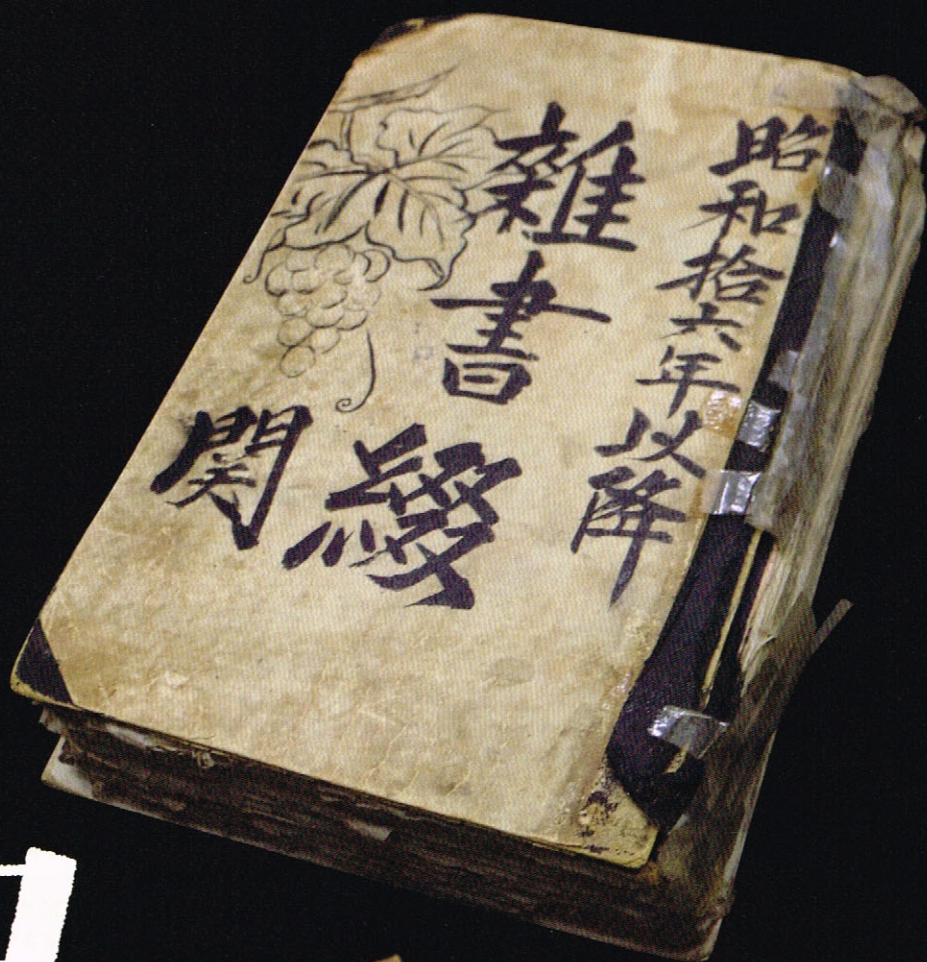 昭和拾六年以降
雜書綴
関